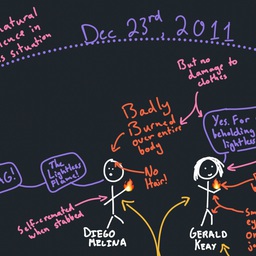 natural
ence in
s situation
Dec 23rd, 2011
But no
damage to
clothes
Badly
Burned
over entire
body
Yes. For
beholding
lightless
NG!
The
Lightless
Flame!
No
Hair!
Self-cremated
when stabbed
DIEGO
MELINA
GERALD
KEAY